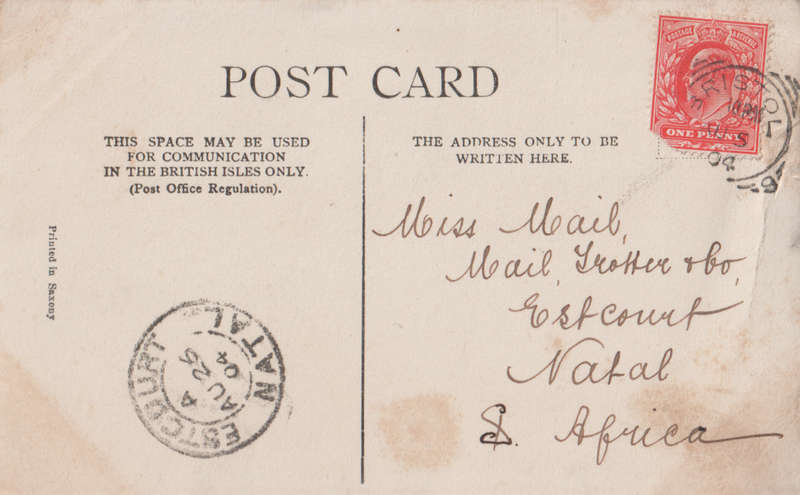 POST CARD
THIS SPACE MAY BE USED
FOR COMMUNICATION
IN THE BRITISH ISLES ONLY.
(Post Office Regulation).
THE ADDRESS ONLY TO BE
WRITTEN HERE.
POSTAGE REVENUE
ONE PENNY
BRISTOL
04
Miss Mail,
Mail, Trotter & Co,
Estcourt
Natal
S. Africa
Printed in Saxony
ESTCOURT
NATAL
A
AU 25
04